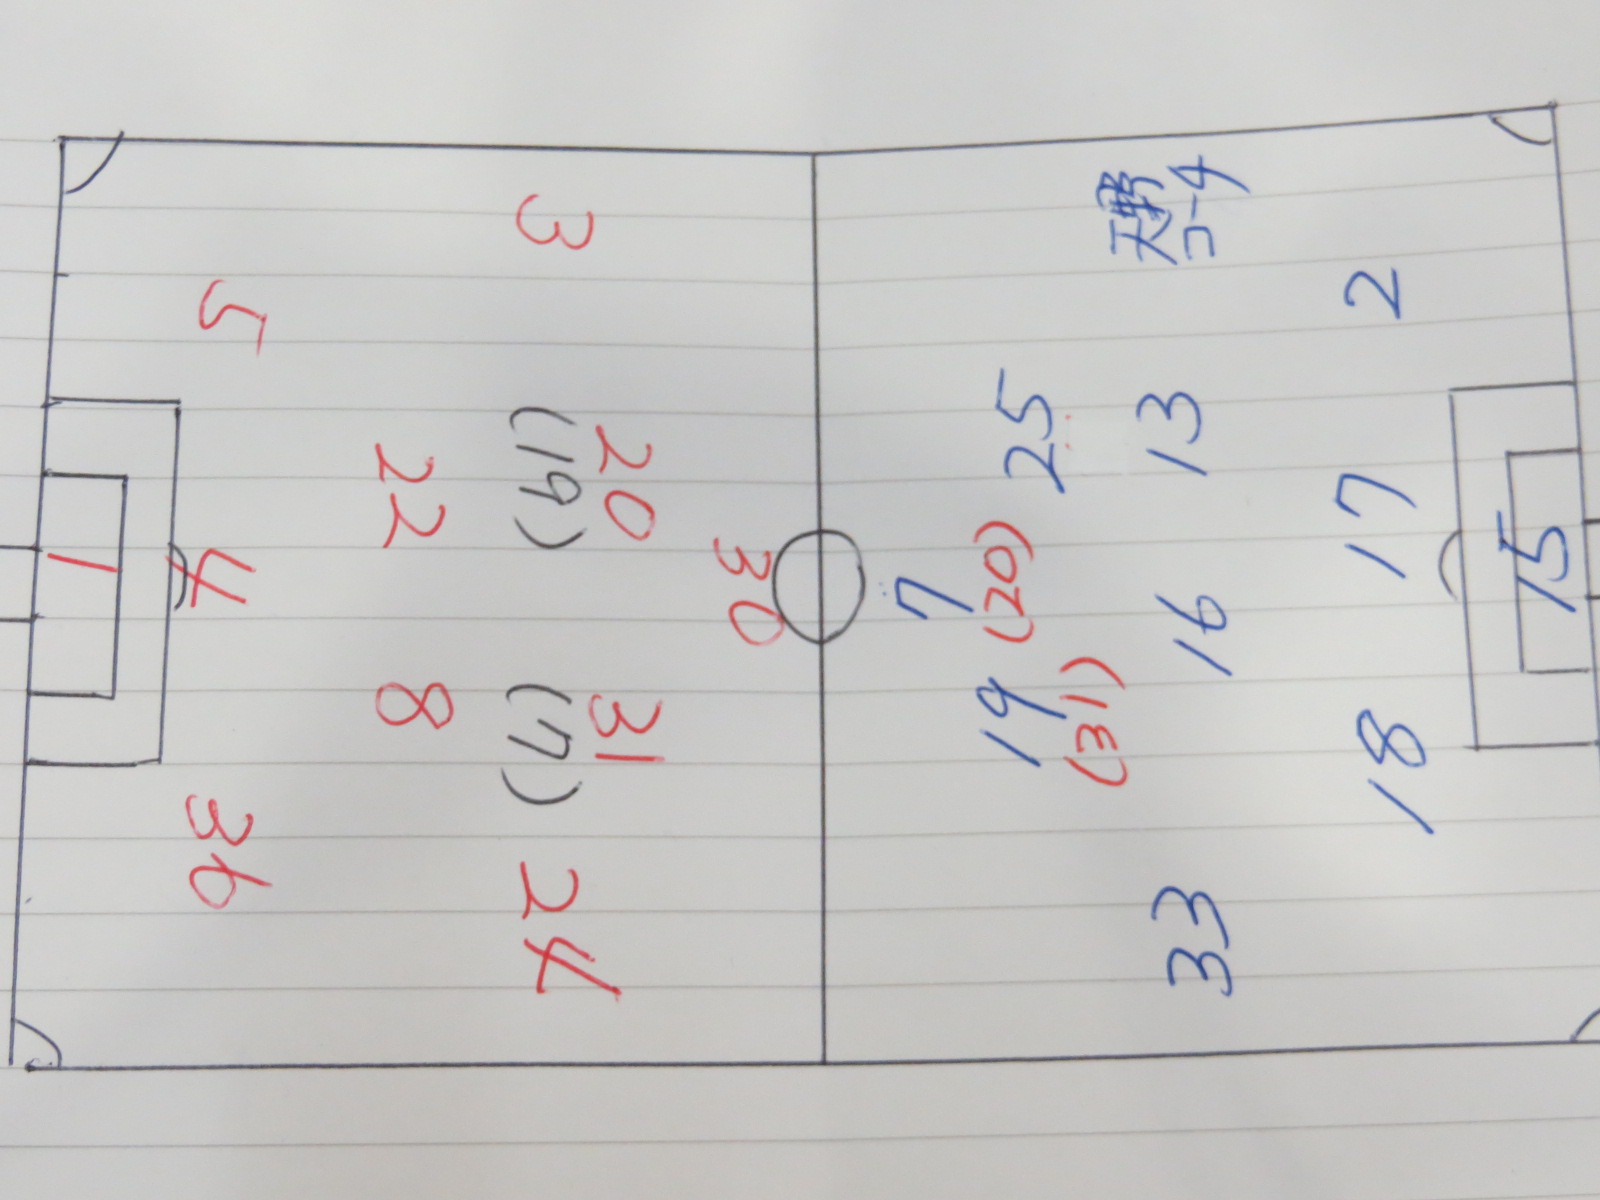 3
5
20
(19)
22
30
1
4
31
(7)
8
36
24
天野
コーチ
2
25
13
17
7
(20)
16
15
19
(31)
18
33